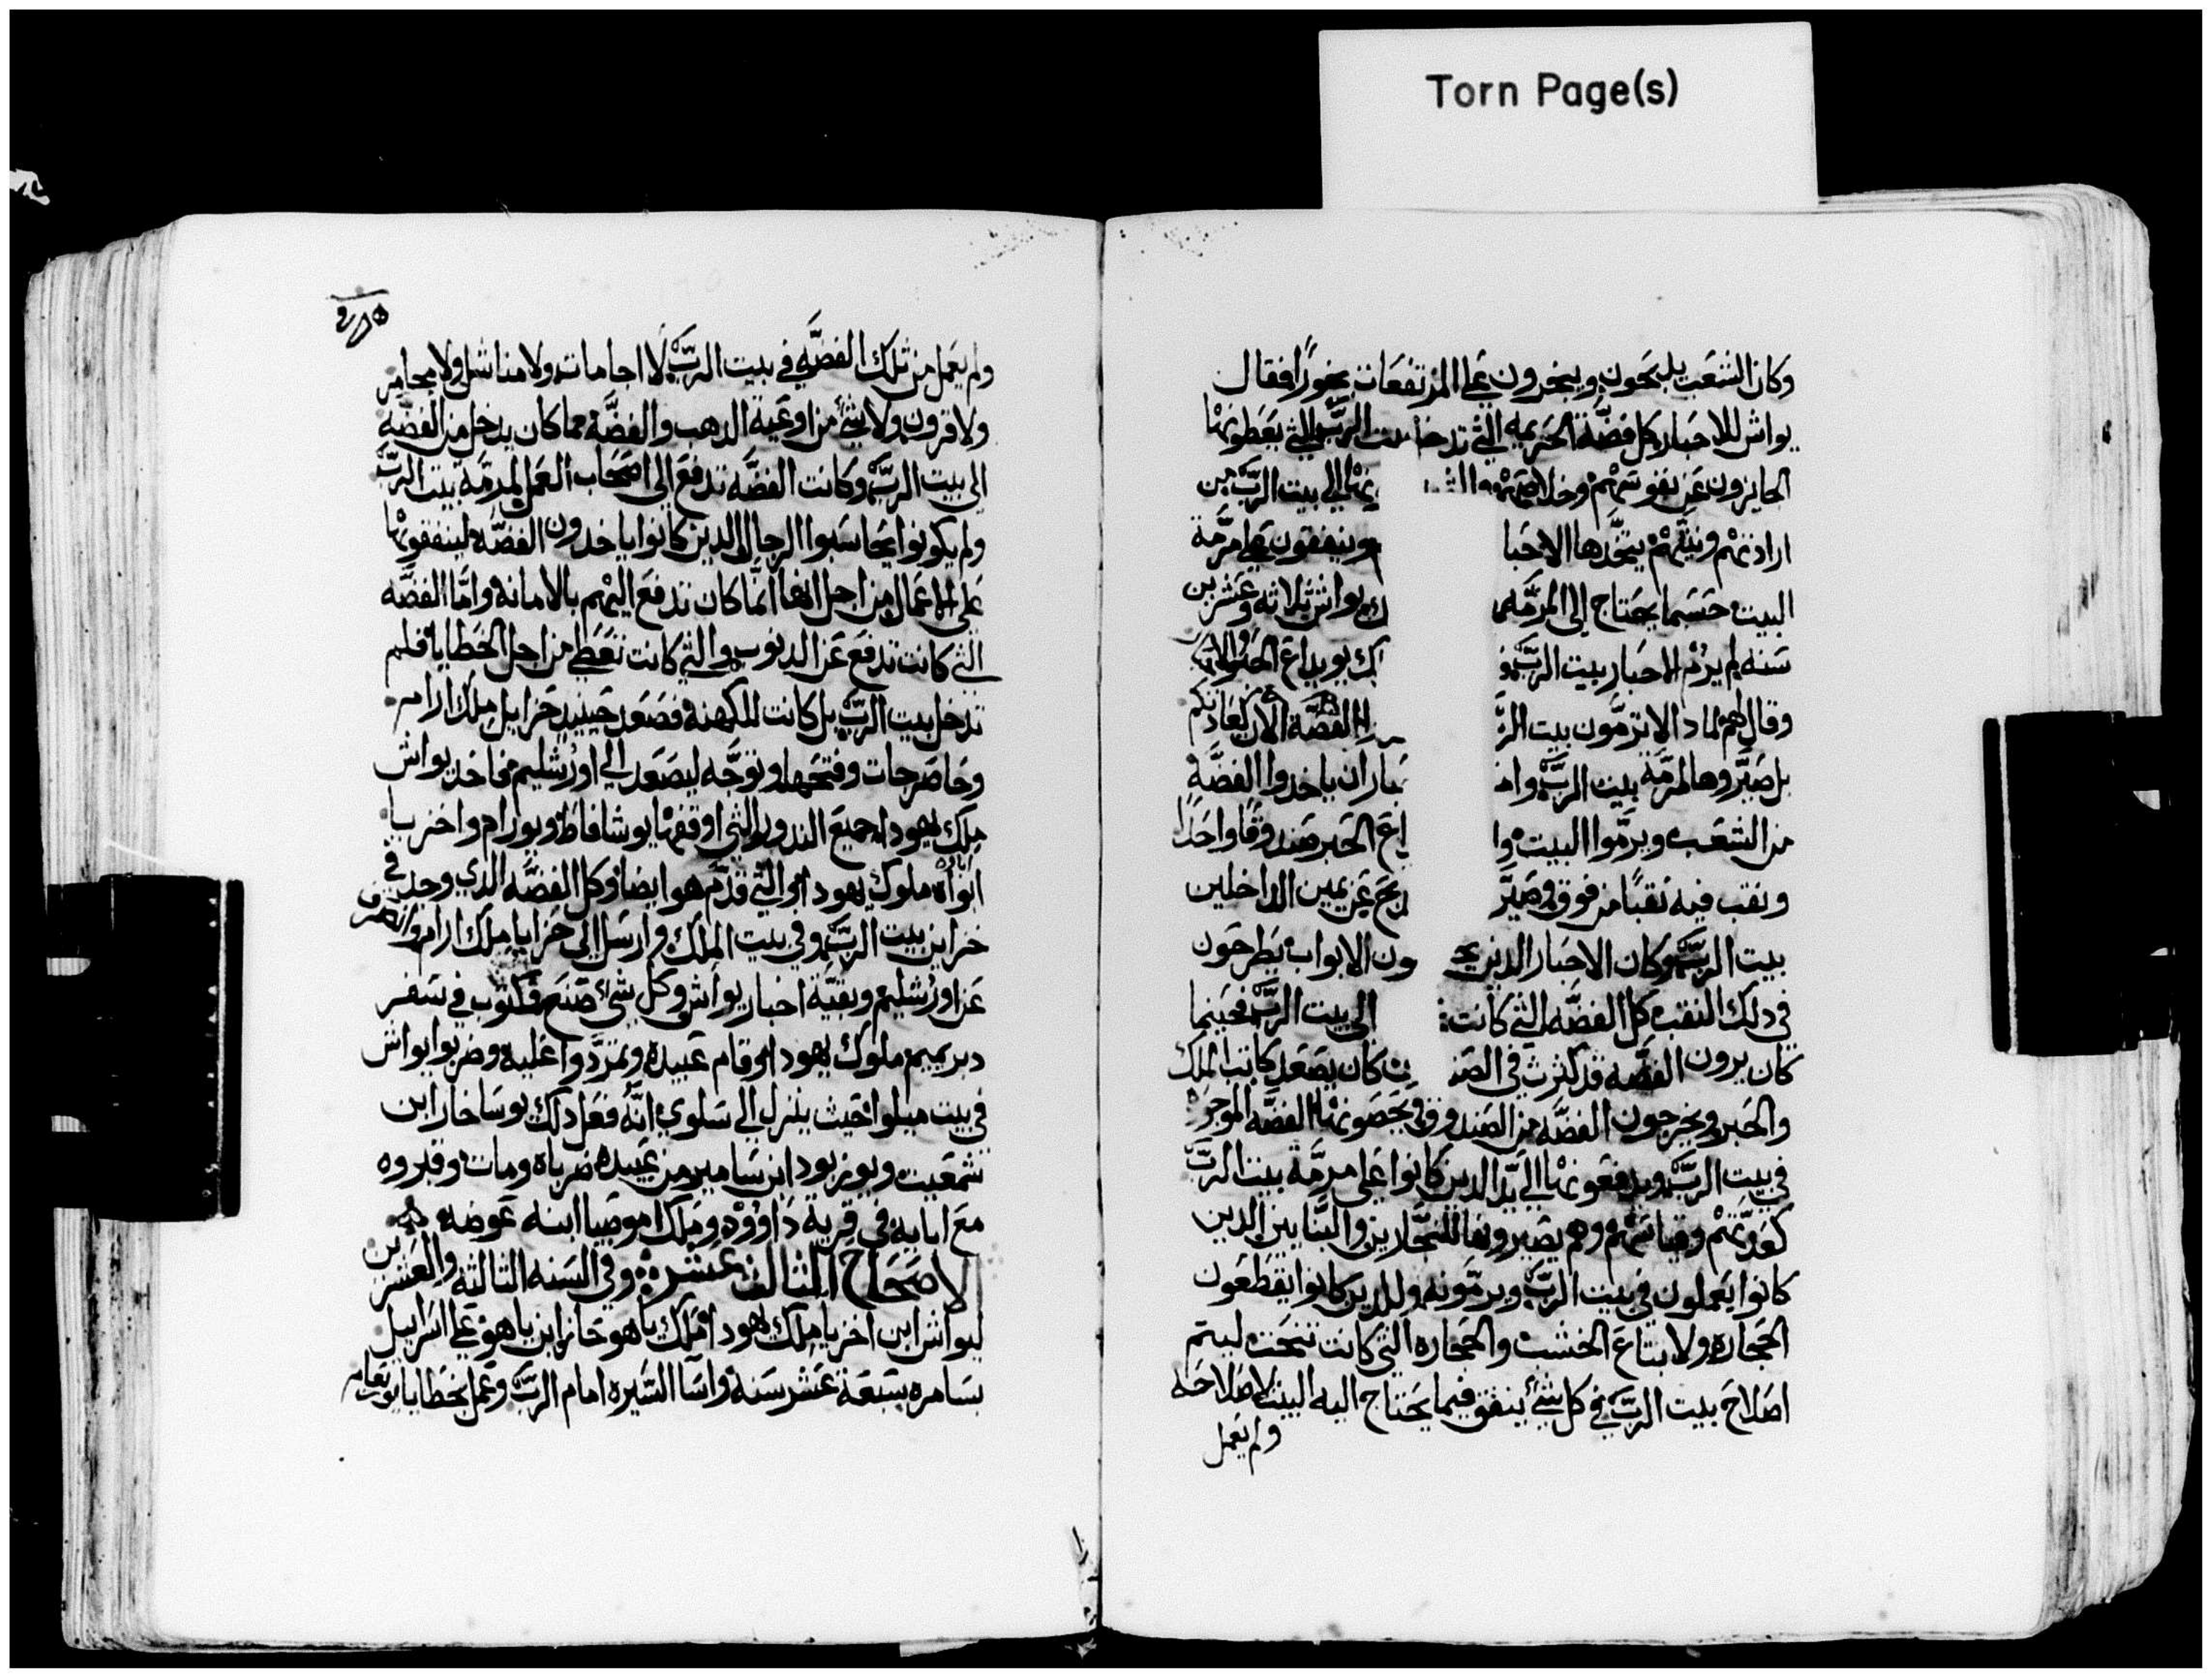 Torn Page(s)
وكان الشعب يدبحون ويبخرون على المرتفعات بخورًا فقال
يواش للاحبار كل فضة الحريمه التي تدخل بيت الربّ التي يعطونها
الجايزون عن نفوسهم وخلاصهم الى بيت الربّ من
ارادتهم ونيتهم يتخدها الاحبا وينفقون على مرمّة
البيت حسبما يحتاج الى المرمّه يواش ثلاثه وعشرين
سنه لم يرمّ الاحبار بيت الربّ يويداع الحبر
وقال لهم لمادا لا ترمّون بيت الر الفضّه الان
بل صيّروها لمرمّة بيت الربّ وا ان ياخدوا الفضّة
من الشعب ويرمّوا البيت وا اع الحبر صندوقًا واحدًا
ونقب فيه نقبًا من فوق وصيّر بح عن يمين الداخلين
بيت الربّ وكان الاحبار الدين يح ون الابواب يطرحون
في دلك النقب كل الفضّه التي كانت الى بيت الربّ فحينما
كان يرون الفضّه قد كثرت في الصند كان يصعد كاتب الملك
والحبر ويخرجون الفضّه من الصندوق ويحصونها الفضّه الموجود
في بيت الربّ ويدفعونها الى يد الدين كانوا على مرمّة بيت الربّ
كعدّتهم وقياسهم وهم يصيرونها للنجّارين والبنّايين الدين
كانوا يعملون في بيت الربّ ويرمّونه وللدين كانوا يقطعون
الحجاره ولابتاع الخشب والحجاره التي كانت تنحت ليتم
اصلاح بيت الربّ في كل شي ينفق فيما يحتاج اليه البيت لاصلاحه
ولم يعمل
ولم يعمل من تلك الفضّه في بيت الربّ لا اجامات ولا مناشل ولا مجامر
ولا قرون ولا شي من اوعية الدهب والفضّة مما كان يدخل من الفضّه
الى بيت الربّ وكانت الفضّه تدفع الى اصحاب العمل لمرمّة بيت الربّ
ولم يكونوا يحاسبوا الرجال الدين كانوا ياخدون الفضّه لينفقونها
على الاعمال من اجل انها انّما كان تدفع اليهم بالامانه وامّا الفضّه
التي كانت تدفع عن الدنوب والتي كانت تعطى من اجل الخطايا فلم
تدخل بيت الربّ بل كانت للكهنة فصعد حينيد حزايل ملك ارام
وحاصر جات وفتحها وتوجّه ليصعد الى اورشليم فاخد يواش
ملك يهودا جميع الندور التي اوقفها يوشافاط ويورام واخزيا
ابواه ملوك يهودا والتي قدّم هو ايضا وكل الفضّه الدي وجد في
خزاين بيت الربّ وفي بيت الملك وارسل الى حزايا ملك ارام وانصرف
عن اورشليم وبقيّة اخبار يواش وكل شي صنع مكتوب في سفر
دبريميم ملوك يهودا وقام عبيده وتمرّدوا عليه وضربوا يواش
في بيت ميلوا حيث ينزل الى سلوي انّه فعل دلك يوساخار ابن
شمعيت ويوزبود ابن سامير من عبيده ضرباه ومات وقبروه
مع ابايه في قرية داوود وملك اموصيا ابنه عوضه
الاصحاح الثالث عشر وفي السنه الثالثه والعشرين
ليواش ابن اخزيا ملك يهودا ملك ياهوحاز ابن ياهو على اسراييل
بسامره سبعة عشر سنة واسا السّيره امام الربّ وعمل بخطايا يوربعام